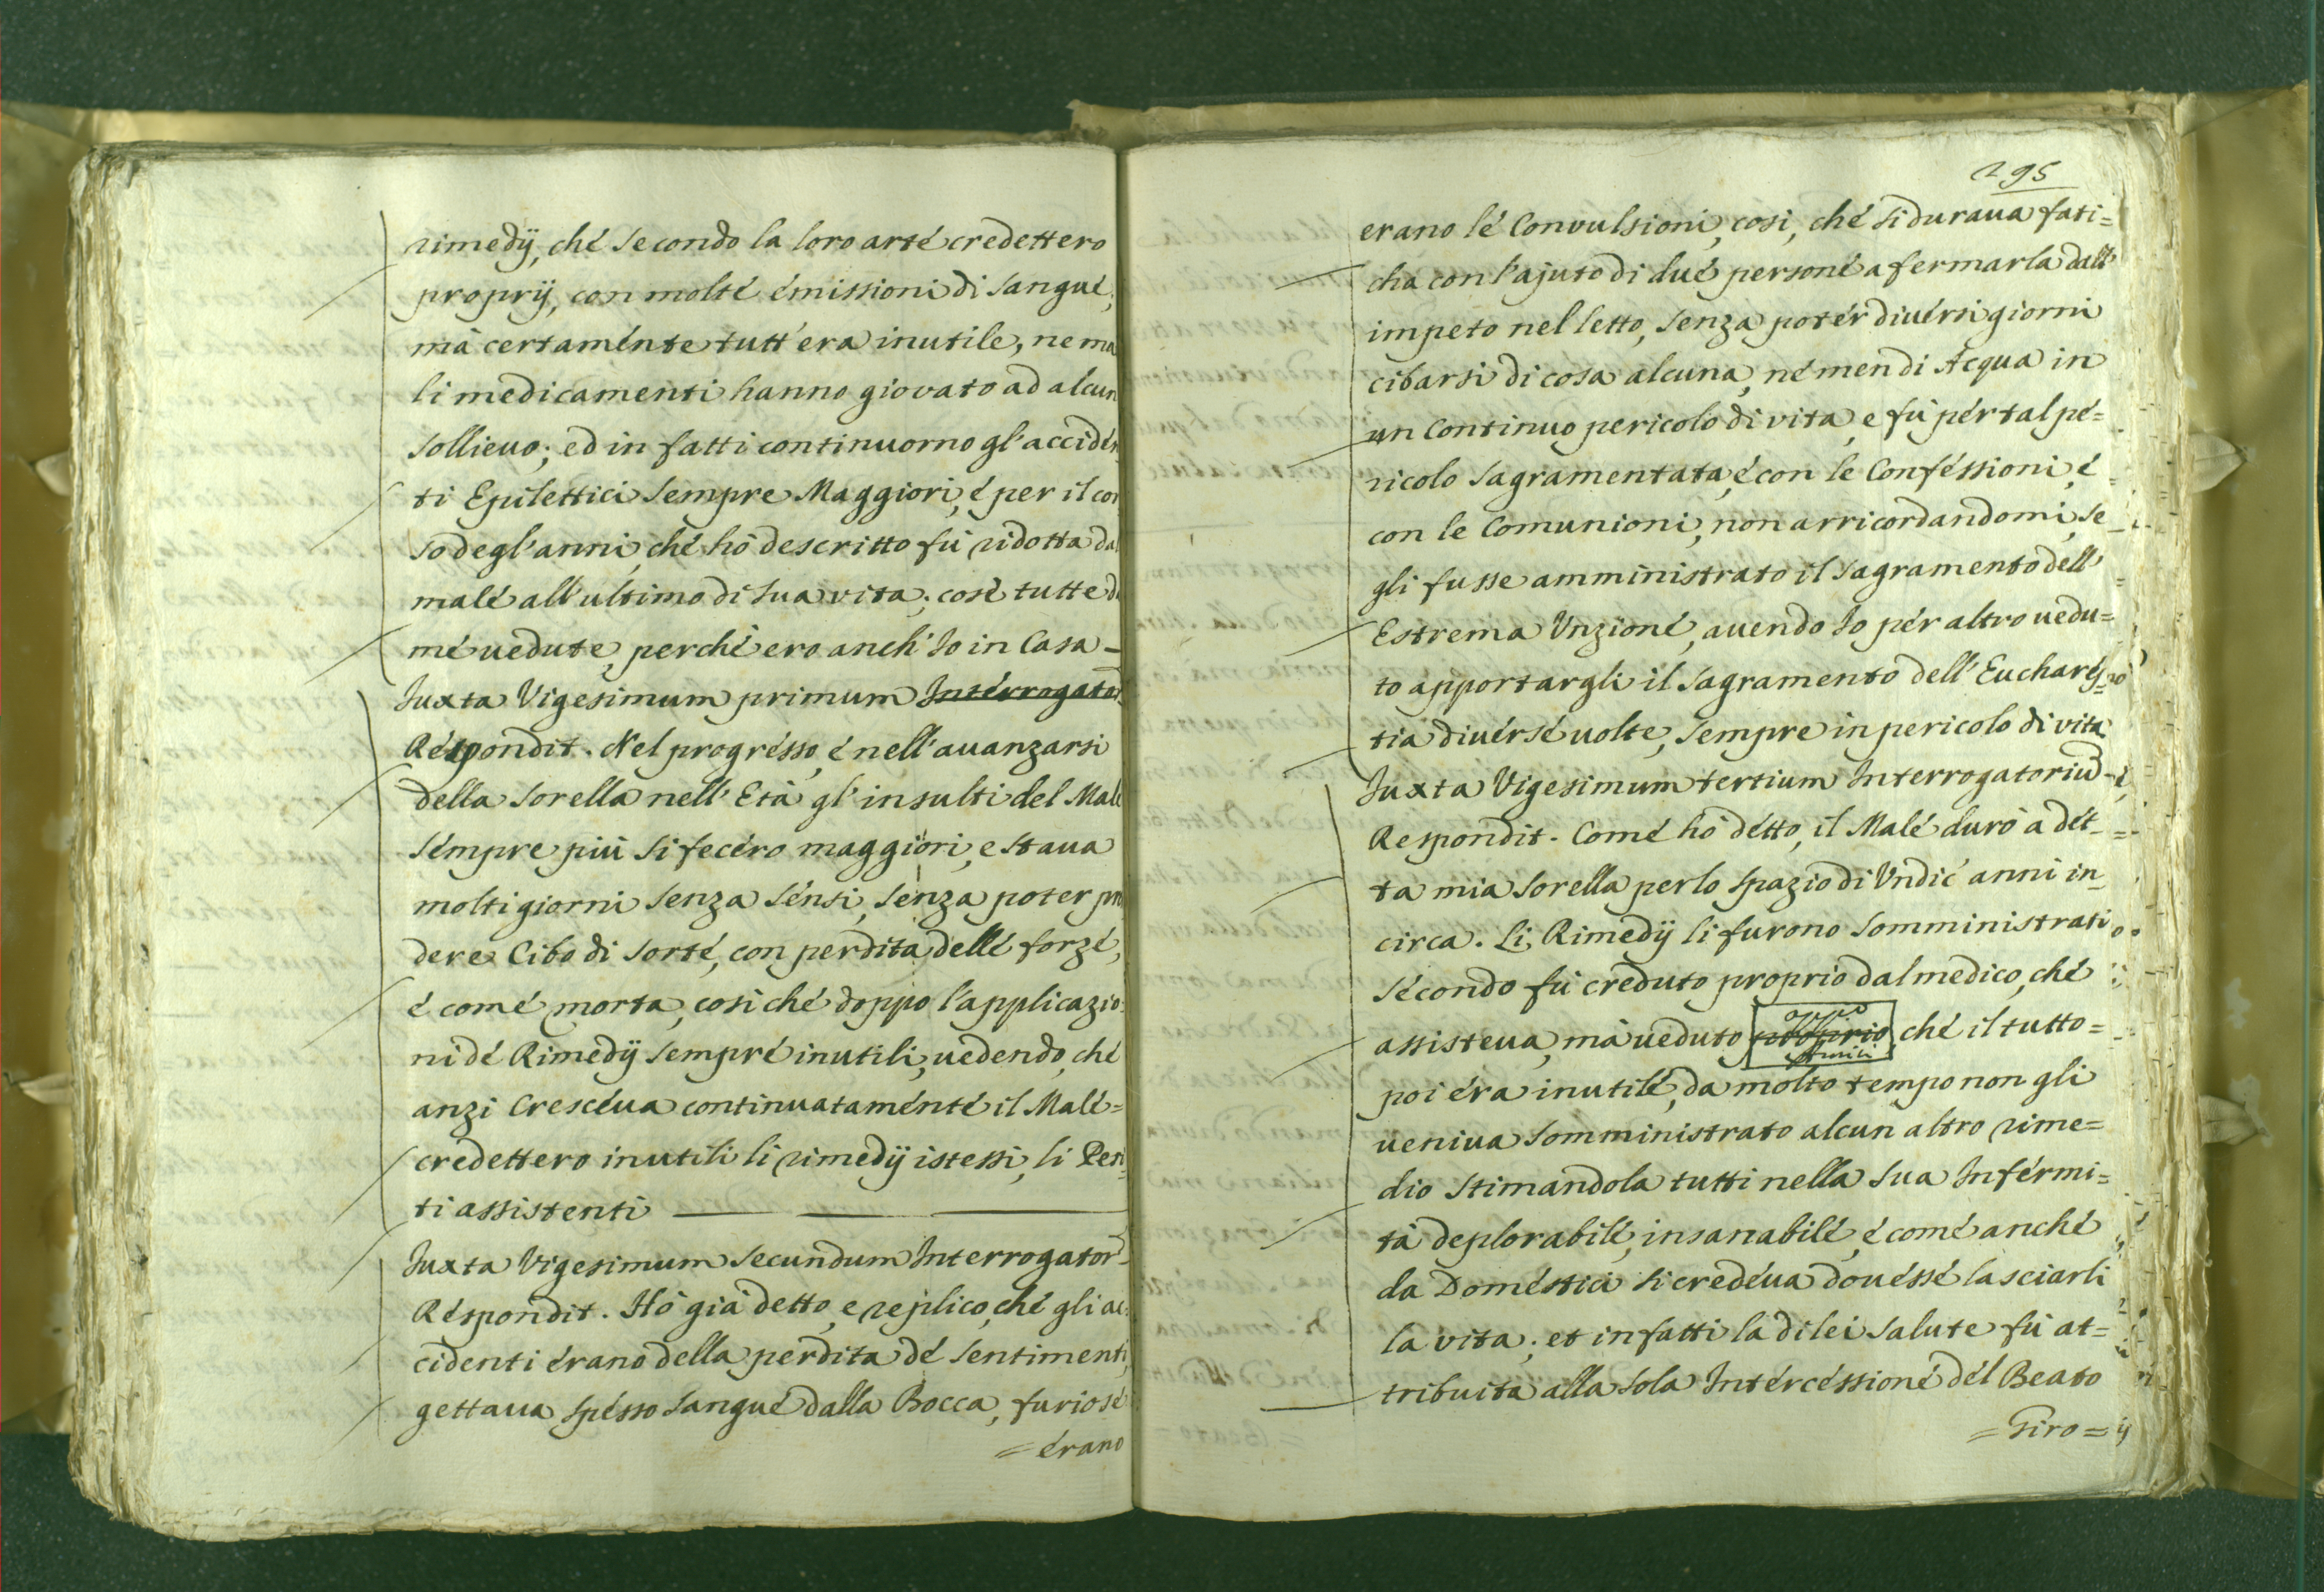 rimedÿ, ché secondo la loro arté credettero
proprÿ, con molté émissioni di sangué,
mà certaménte tutt'era inutile, ne ma
li medicamenti hanno giovato ad alcun
sollieuo; ed in fatti continuorno gl'acciden
ti Epilettici sempre Maggiori, é per il cor
so degl'anni, ché hò descritto fù ridotta dal
malé all'ultimo di sua vita; cosé tutte da
mé uedute, perché ero anch'Io in Casa –
Juxta Vigesimum primum Intérrogator
Réspondit. Nel progrésso, é nell'auanzarsi
della Sorella nell'Età gl'insulti del Male
sémpre più si fecéro maggiori, e staua
molti giorni senza sénsi, senza poter pren
dere Cibo di sorté, con perdita dellé forzé,
é comé morta, cosiché doppo l'applicazio
ni dé Rimedÿ sempré inutili, uedendo, ché
anzi Crescéua continuataménté il Malé=
credettero inutili li rimedÿ istessi, li Peri
ti assistenti
Juxta Vigesimum secundum Interrogator
Réspondit. Hò già detto, e replico, ché gli ac
cidenti érano della perdita dé sentimenti,
gettaua spésso sangué dalla Bocca, furiosé
= érano
295
erano lé Convulsioni, cosi, ché si duraua fati=
cha con l'ajuto di dué personé a fermarla dall'
impeto nel letto, senza potér diuérsi giorni
cibarsi di cosa alcuna, né men di Acqua in
un Continuo pericolo di vita, e fù pér tal pé=
ricolo Sagramentata, é con le Conféssioni, é
con le Comunioni, non arricordandomi, se
gli fusse amministrato il Sagramento dell'
Estrema Vnzioné, auendo Io pér altro uedu=
to apportargli il Sagramento dell'Eucharés=
tia diuérsé uolte, sempre in pericolo di vita
Juxta Vigesimum tertium Interrogatoriũ
Respondit. Comé hò détto, il Malé durò à dét
ta mia Sorella per lo spazio di Vndic' anni in
circa. Li Rimedÿ li furono somministrati
sécondo fù créduto proprio dal medico, ché
assisteua, mà ueduto ché il tutto=
poi éra inutilé, da molto tempo non gli
ueniua somministrato alcun altro rime=
dio stimandola tutti nella sua Inférmi=
tà déplorabilé, insanabilé, é comé anché
da Doméstici si credéua douéssé lasciarli
la vita; et in fatti la di lei salute fù at=
tribuita alla sola Intércéssioné dél Beato
= Giro =